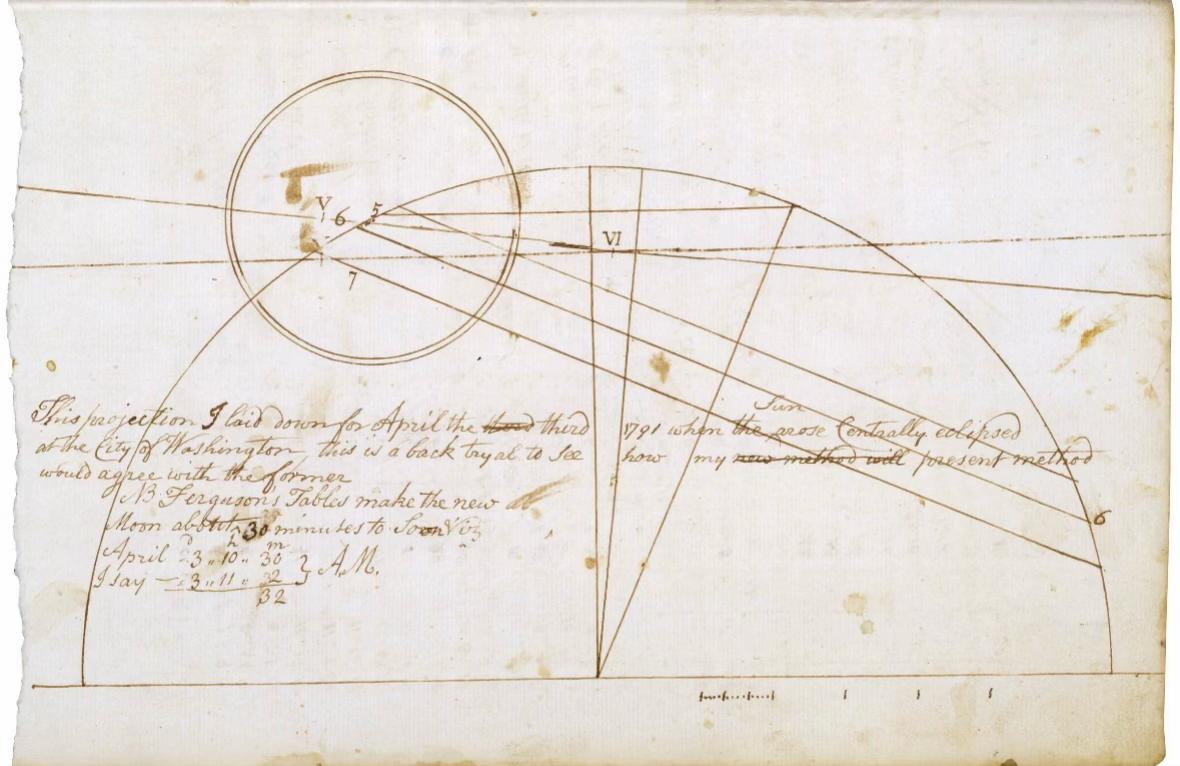 V
6 5
VI
7
This projection I laid down for April the third third 1791 when the Sun arose Centrally eclipsed
at the City of Washington this is a back tryal to See how my new method will present method
would agree with the former
NB Fergusons Tables make the new
Moon about 30 minutes to Soon Viz
April 3 .. 10 .. 30
I say 3 .. 11 .. 2 } A.M.
32
6